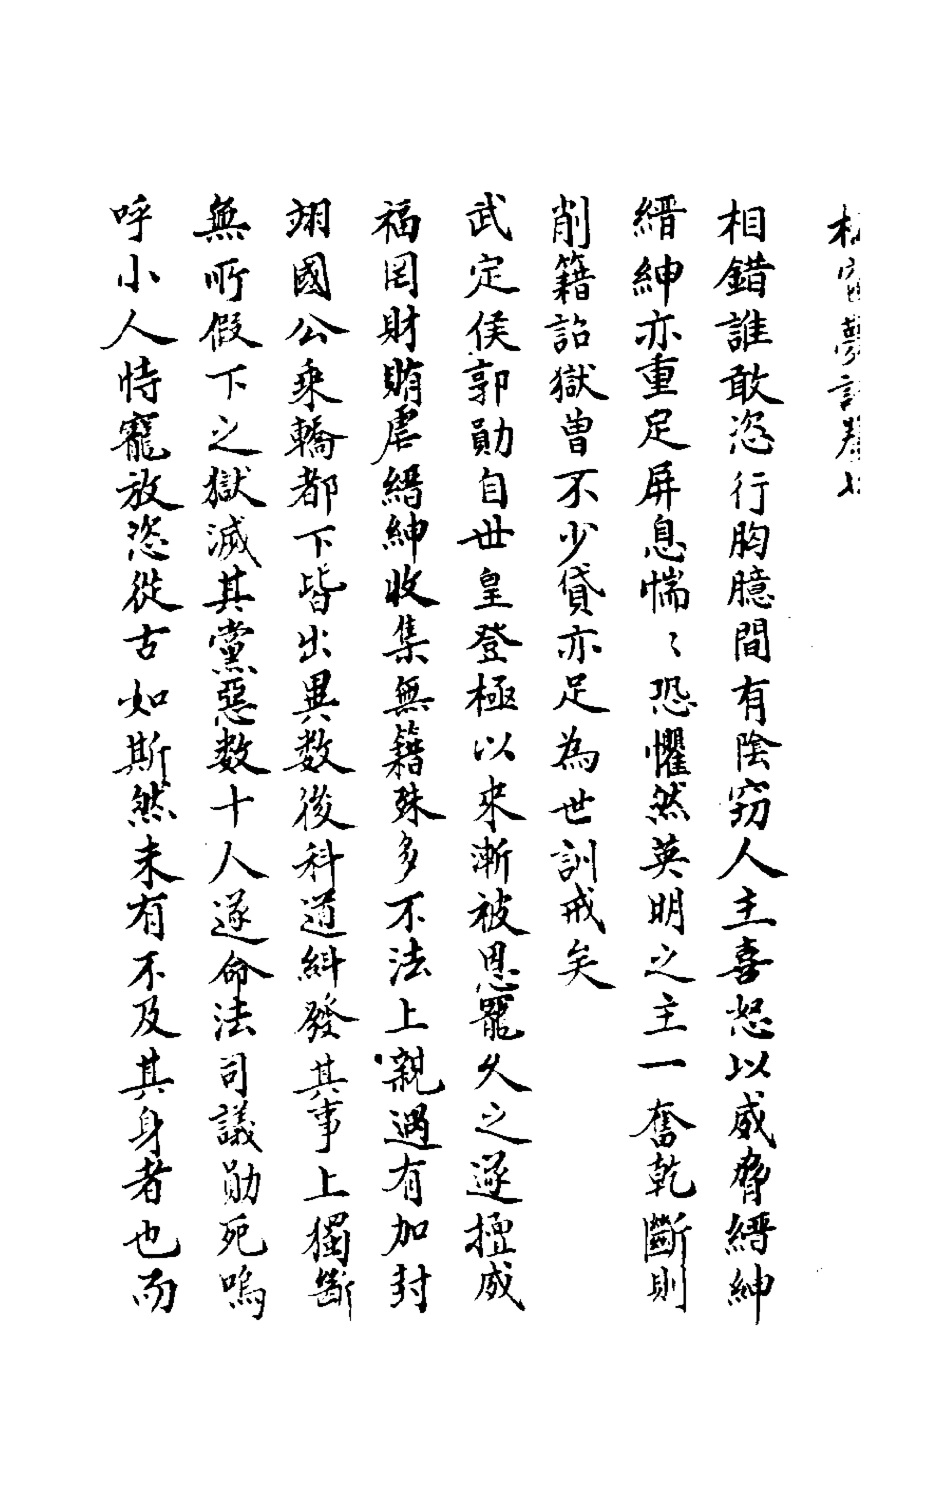 相錯誰敢恣行胸臆間有陰窃人主喜怒以威脅縉紳
縉紳亦重足屏息惴〻恐懼然英明之主一奮乾斷則
削籍詔獄曾不少貸亦足為世訓戒矣
武定侯郭勛自世皇登極以来漸被恩寵久之遂擅威
福罔財賄虐縉紳收集無籍殊多不法上親遇有加封
翊國公乘轎都下皆出異数後科道糾發其事上獨斷
無所假下之獄滅其黨惡数十人遂命法司議勛死嗚
呼小人恃寵放恣從古如斯然未有不及其身者也而